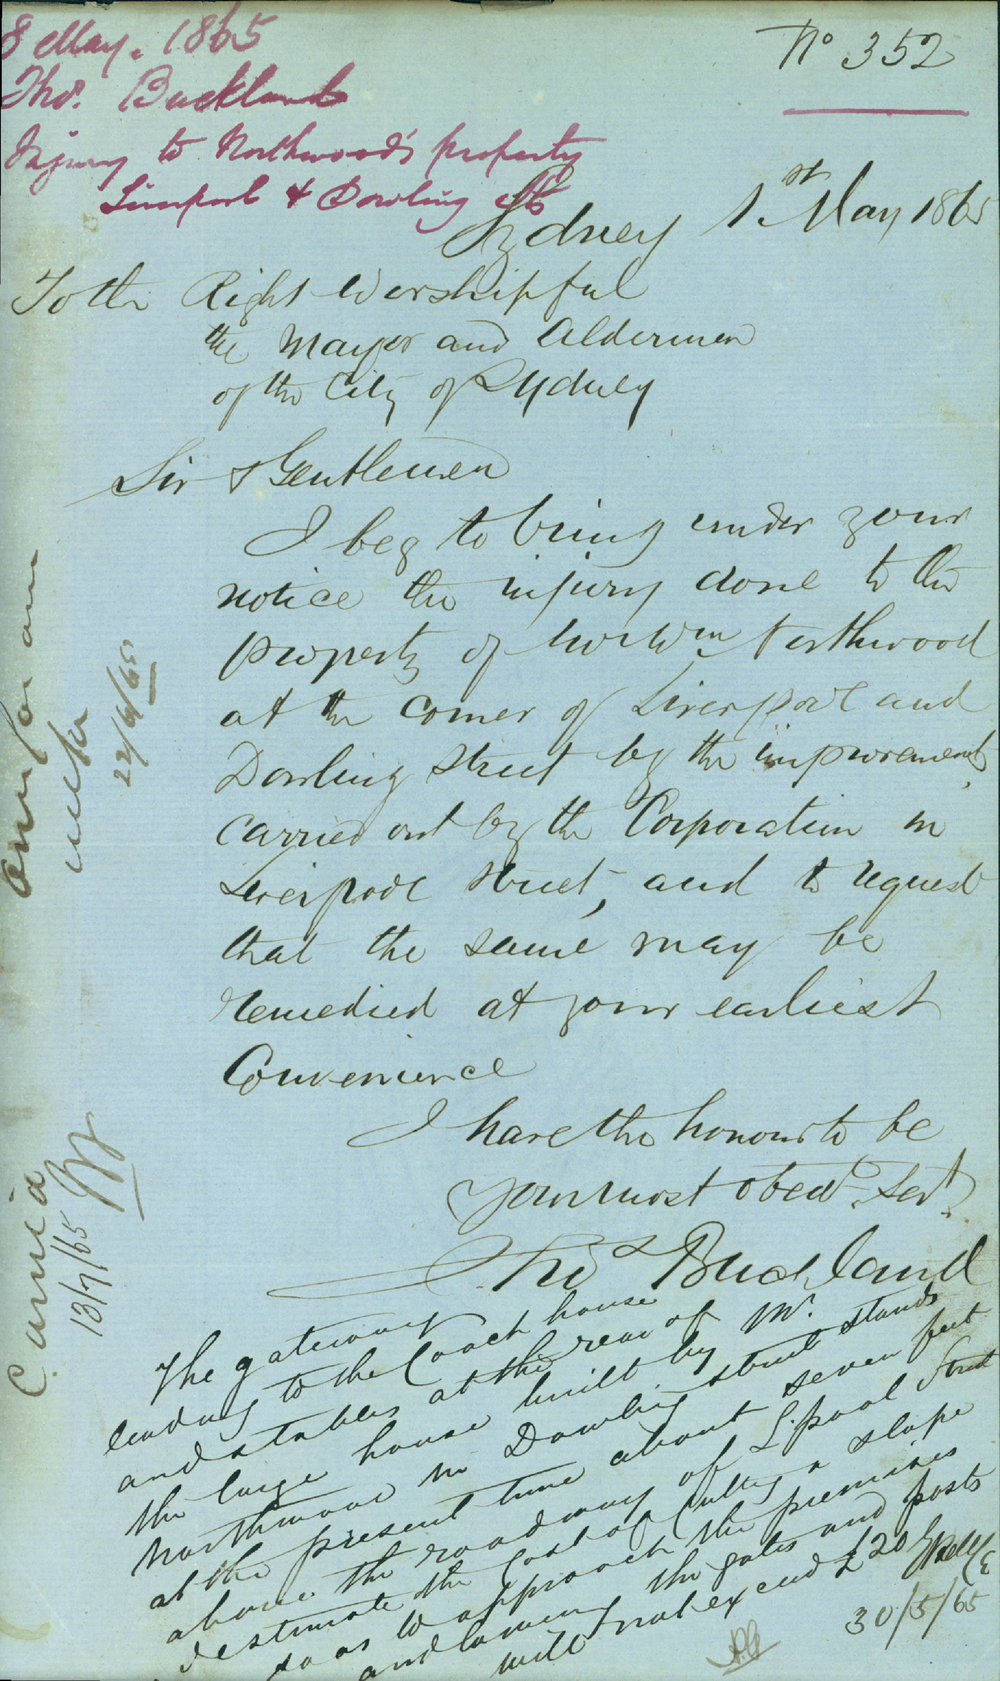 8 May. 1865
Thos. Buckland
Injury to Northwood's property
Liverpool & Dowling Sts
No 352
Sydney 1st May 1865
To the Right Worshipful
the Mayor and Aldermen
of the City of Sydney
Sir & Gentlemen
I beg to bring under your
notice the injury done to the
property of Mr Wm Northwood
at the corner of Liverpool and
Dowling Street by the improvements
carried out by the Corporation in
Liverpool Street, and to request
that the same may be
remedied at your earliest
Convenience
I have the honour to be
Your most obedt. Servt.
Thos Buckland
The gateway
leading to the Coach house
and stables at the rear of
the large house built by Mr.
Northwood in Dowling street stands
at the present time about seven feet
above the roadway of L.pool Street
I estimate the cost of Cutting a slope
so as to approach the premises
and lowering the gates and posts
will not exceed £20
30/5/65
22/6/65
week
Carried
13/7/65